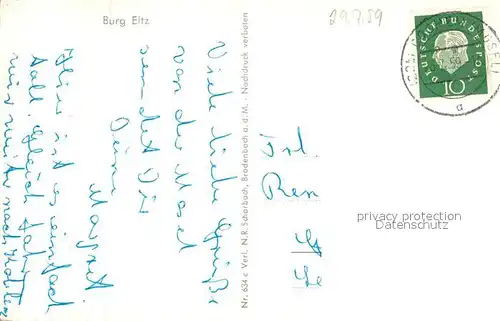 Burg Eltz
29.7.59
DEUTSCHE BUNDESPOST
10
a
Viele liebe Grüße
von der Mosel
sendet Dir
Deine
Margret
Hier ist es einfach
toll. Gleich fahren
wir weiter nach Koblenz
Nr. 634 c Verl. N.R. Scharbach, Brodenbach a. d. M. - Nachdruck verboten
Frl.
Ren
privacy protection
Datenschutz